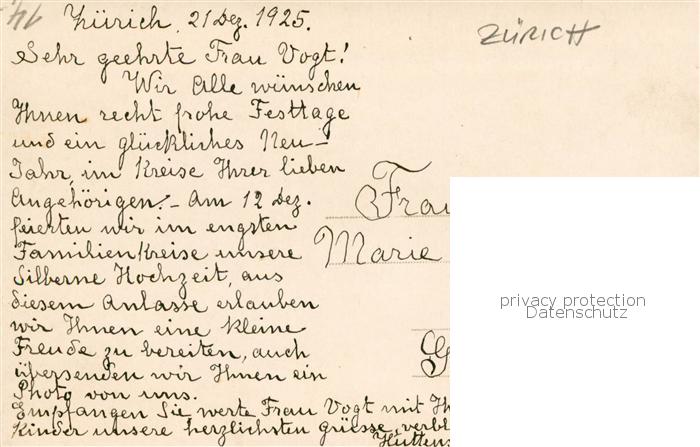 Zürich, 21 Dez. 1925.
ZÜRICH
Sehr geehrte Frau Vogt!
Wir Alle wünschen
Ihnen recht frohe Festtage
und ein glückliches Neu-
Jahr, im Kreise Ihrer lieben
Angehörigen! - Am 12 Dez.
feierten wir im engsten
Familienkreise unsere
Silberne Hochzeit, aus
diesem Anlasse erlauben
wir Ihnen eine kleine
Freude zu bereiten, auch
übersenden wir Ihnen ein
Photo von uns.
Empfangen Sie werte Frau Vogt mit Ih
Kinder unsere herzlichsten grüsse, verbl
Huttens
Frau
Marie
G
privacy protection
Datenschutz